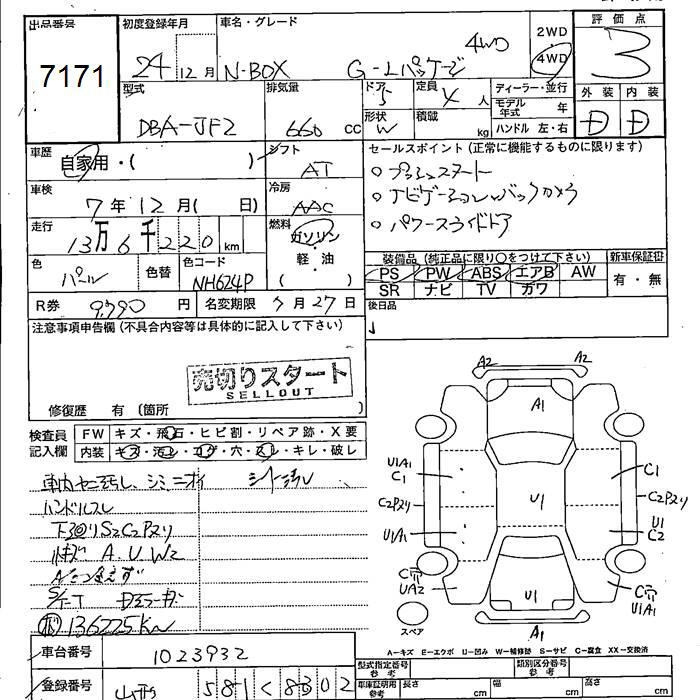 出品番号 7171
初度登録年月 24年12月
車名・グレード N-BOX G-Lパッケージ 4WD
2WD
4WD
評価点 3
型式 DBA-JF2
排気量 660 cc
ドア 5
定員 4人
形状 W
積載 kg
ディーラー・並行
モデル年式 年
ハンドル 左・右
外装 D
内装 D
車歴 自家用・( )
シフト AT
セールスポイント(正常に機能するものに限ります)
○プッシュスタート
○ナビゲーション バックカメラ
○パワースライドドア
車検 7年12月( 日)
冷房 AAC
走行 13万6千220km
燃料 ガソリン
軽・油
( )
色 パール
色替
色コード NH624P
装備品(純正品に限り○をつけて下さい)
新車保証書
PS PW ABS エアB AW
有・無
SR ナビ TV カワ
R券 9,790円
名変期限 7月27日
後日品
注意事項申告欄(不具合内容等は具体的に記入して下さい)
売切りスタート
SELLOUT
修復歴 有 (箇所 )
検査員記入欄
FW キズ・飛石・ヒビ割・リペア跡・X要
内装 キズ・汚レ・コゲ・穴・スレ・キレ・破レ
ハンドルスレ
下回りS2C2Pヌリ
A.U.W2
136225Km
A2 A2
A1
U1A1
C1
C1
C2Pヌリ
C2Pヌリ
U1
U1A1
U1
C2
UA2
U1A1
U1
A1
スペア
A-キズ E-エクボ U-凹み W-補修跡 S-サビ C-腐食 XX-交換済
車台番号 1023932
登録番号 581 < 8302
型式指定番号 参考
類別区分番号 参考
車庫証明用 参考
長さ cm
幅 cm
高さ cm